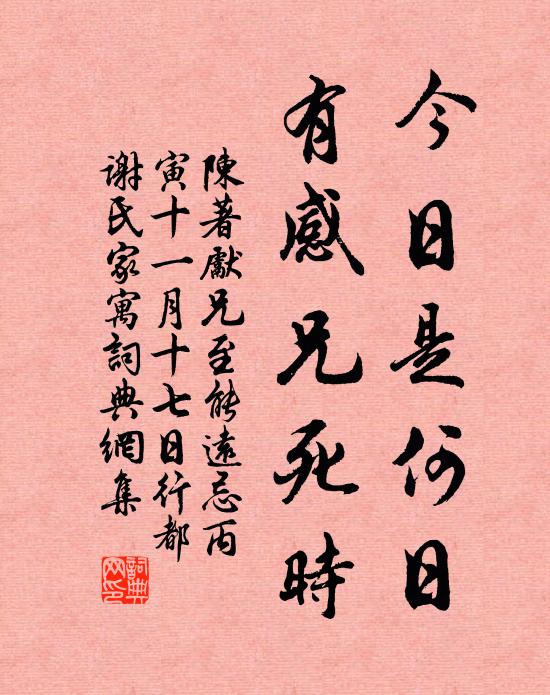 今日是何日
有感兄死時
陳著獻兄至能遠忌丙
寅十一月十七日行都
謝氏家寓詞典網集
詞典
網印